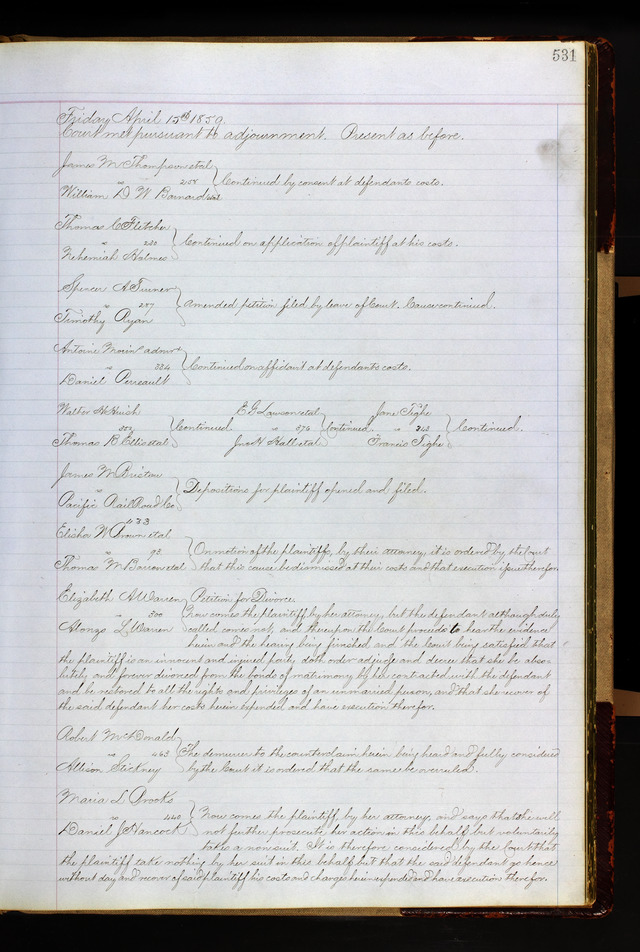 531
Friday April 15th 1859.
Court met pursuant to adjournment. Present as before.
James M Thompson et al
vs 207 Continued by consent at defendants costs.
William D. W Barnard et al
Thomas C Fletcher
vs 230 Continued on application of plaintiff at his costs.
Nehemiah Holmes
Spencer A Turner
vs 297 Amended petition filed by leave of Court. Cause continued.
Timothy Ryan
Antoine Morin admr
vs 324 Continued on affidavit at defendants costs.
Daniel Perreault
Walter H E G Lawson et al Jane Tighe
vs Continued. vs 376 Continued. vs 343 Continued.
Thomas R Ellis et al Jno H Hall et al Francis Tighe
James M Bristow
vs Depositions for plaintiff opened and filed.
Pacific Rail Road Co
433
Elisha W Brown et al
vs 98 On motion of the plaintiffs, by their attorney, it is ordered by the Court
Thomas M Barron et al that this cause be dismissed at their costs and that execution issue therefor.
Elizabeth A Warren Petition for Divorce.
vs 300 Now comes the plaintiff by her attorney, but the defendant although duly
Alonzo L Warren called comes not, and thereupon the Court proceeds to hear the evidence
herein and the hearing being finished and the Court being satisfied that
the plaintiff is an innocent and injured party doth order adjudge and decree that she be abso-
lutely and forever divorced from the bonds of matrimony by her contracted with the defendant
and be restored to all the rights and privileges of an unmarried person, and that she recover of
the said defendant her costs herein expended and have execution therefor.
Robert McDonald
vs 463 The demurrer to the counterclaim herein being heard and fully considered
Allison Stickney by the Court it is ordered that the same be overruled.
Maria L Brooks
vs 440 Now comes the plaintiff by her attorney, and says that she will
Daniel J Hancock not further prosecute her action in this behalf but voluntarily
takes a non suit. It is therefore considered by the Court that
the plaintiff take nothing by her suit in this behalf but that the said defendant go hence
without day and recover of said plaintiff his costs and charges herein expended and have execution therefor.